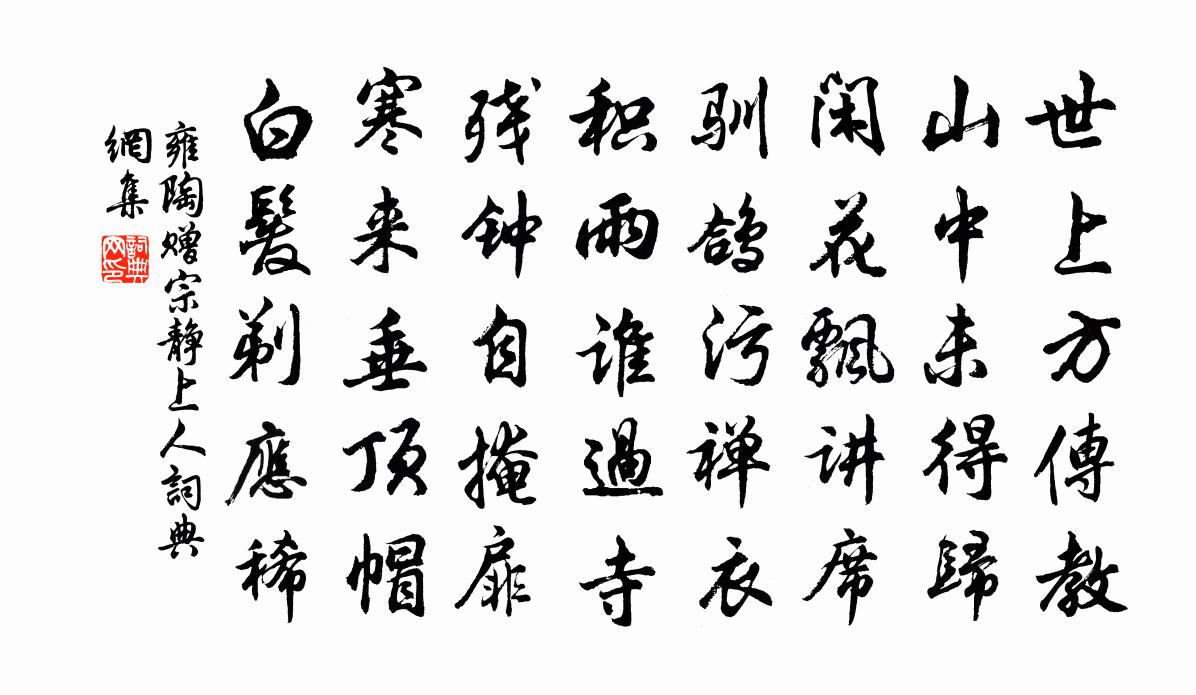 世上方傳教
山中未得歸
闲花飄讲席
驯鸽污禅衣
积雨谁過寺
残钟自掩扉
寒来垂顶帽
白髮剃應稀
雍陶赠宗静上人詞典
網集
詞典网印